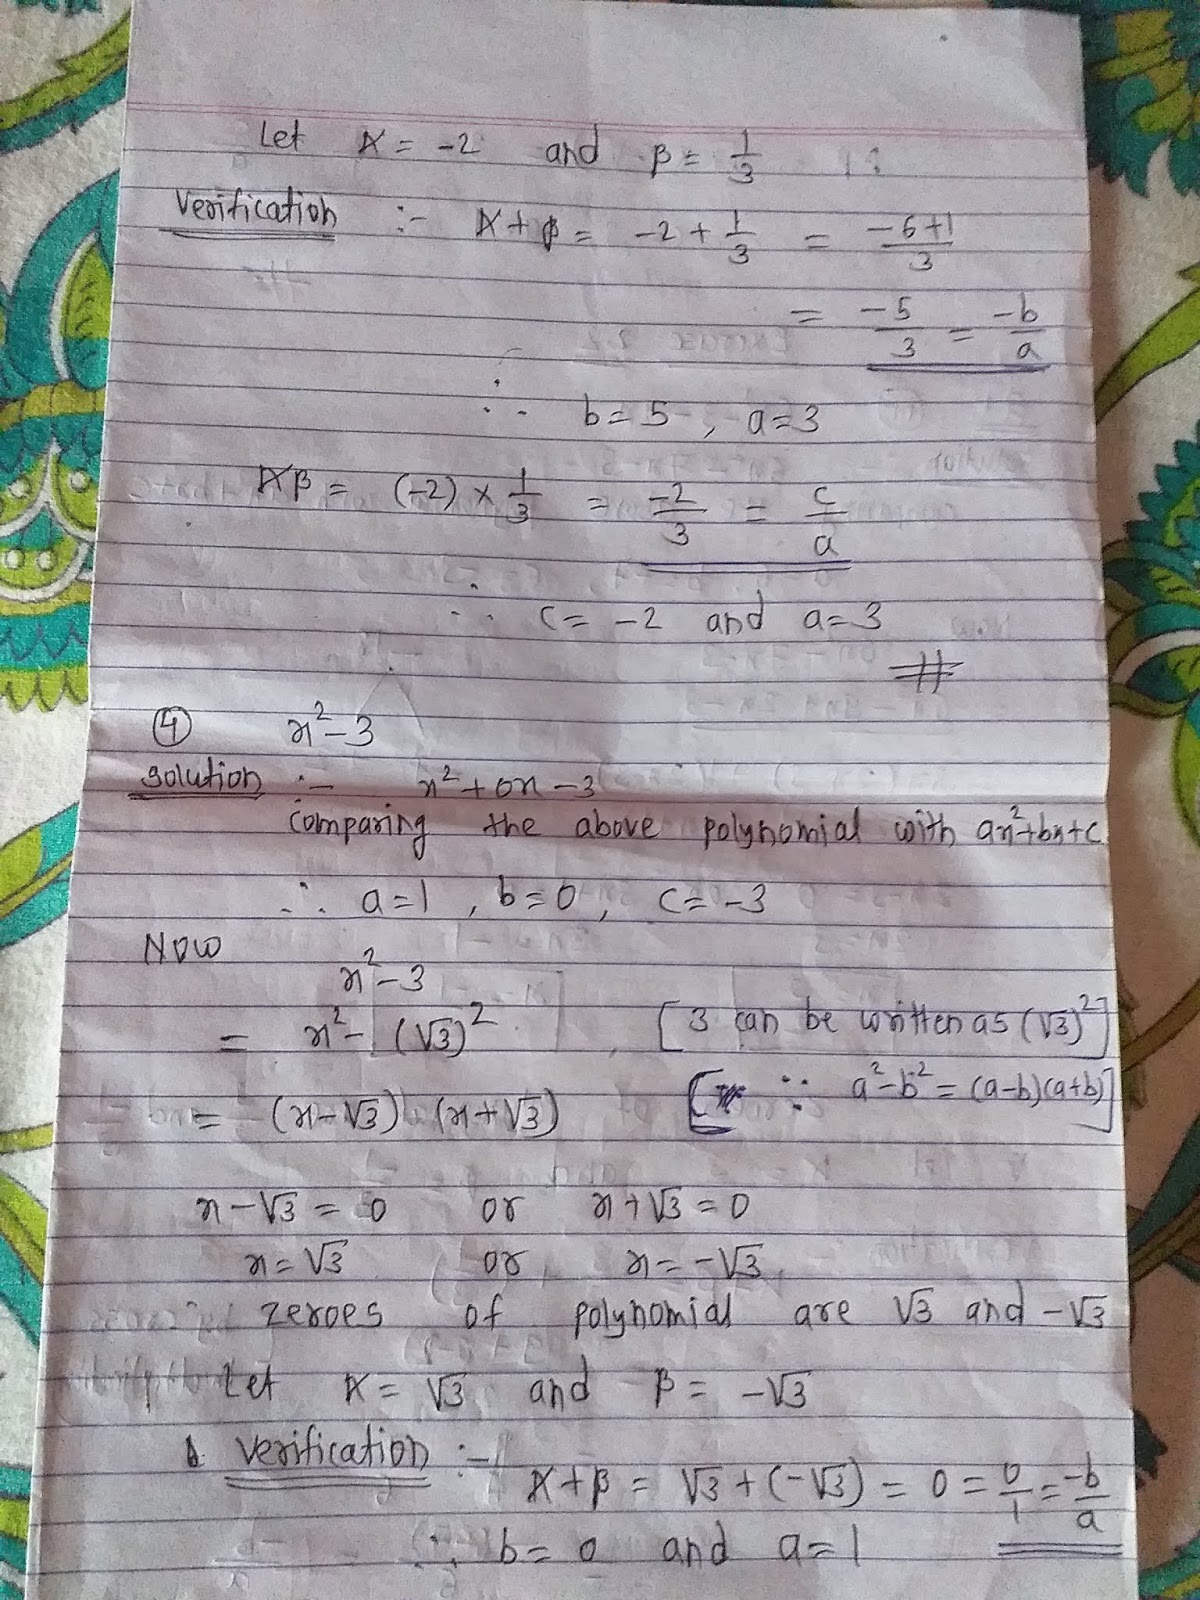 Let α = -2 and β = 1/3
Verification :- α + β = -2 + 1/3 = -6+1/3
= -5/3 = -b/a
∴ b = 5, a = 3
αβ = (-2) × 1/3 = -2/3 = c/a
∴ c = -2 and a = 3
④ x² - 3
Solution :- x² + 0x - 3
Comparing the above polynomial with ax²+bx+c
∴ a = 1, b = 0, c = -3
Now
x² - 3
= x² - (√3)² [3 can be written as (√3)²]
= (x-√3) (x+√3) [∵ a²-b² = (a-b)(a+b)]
x - √3 = 0 or x + √3 = 0
x = √3 or x = -√3
zeroes of polynomial are √3 and -√3
Let α = √3 and β = -√3
Verification :-
α + β = √3 + (-√3) = 0 = 0/1 = -b/a
∴ b = 0 and a = 1